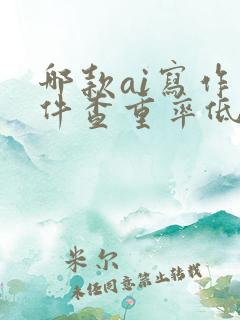 那款ai寫作
件查重率低
米尔
未经同意禁止转载